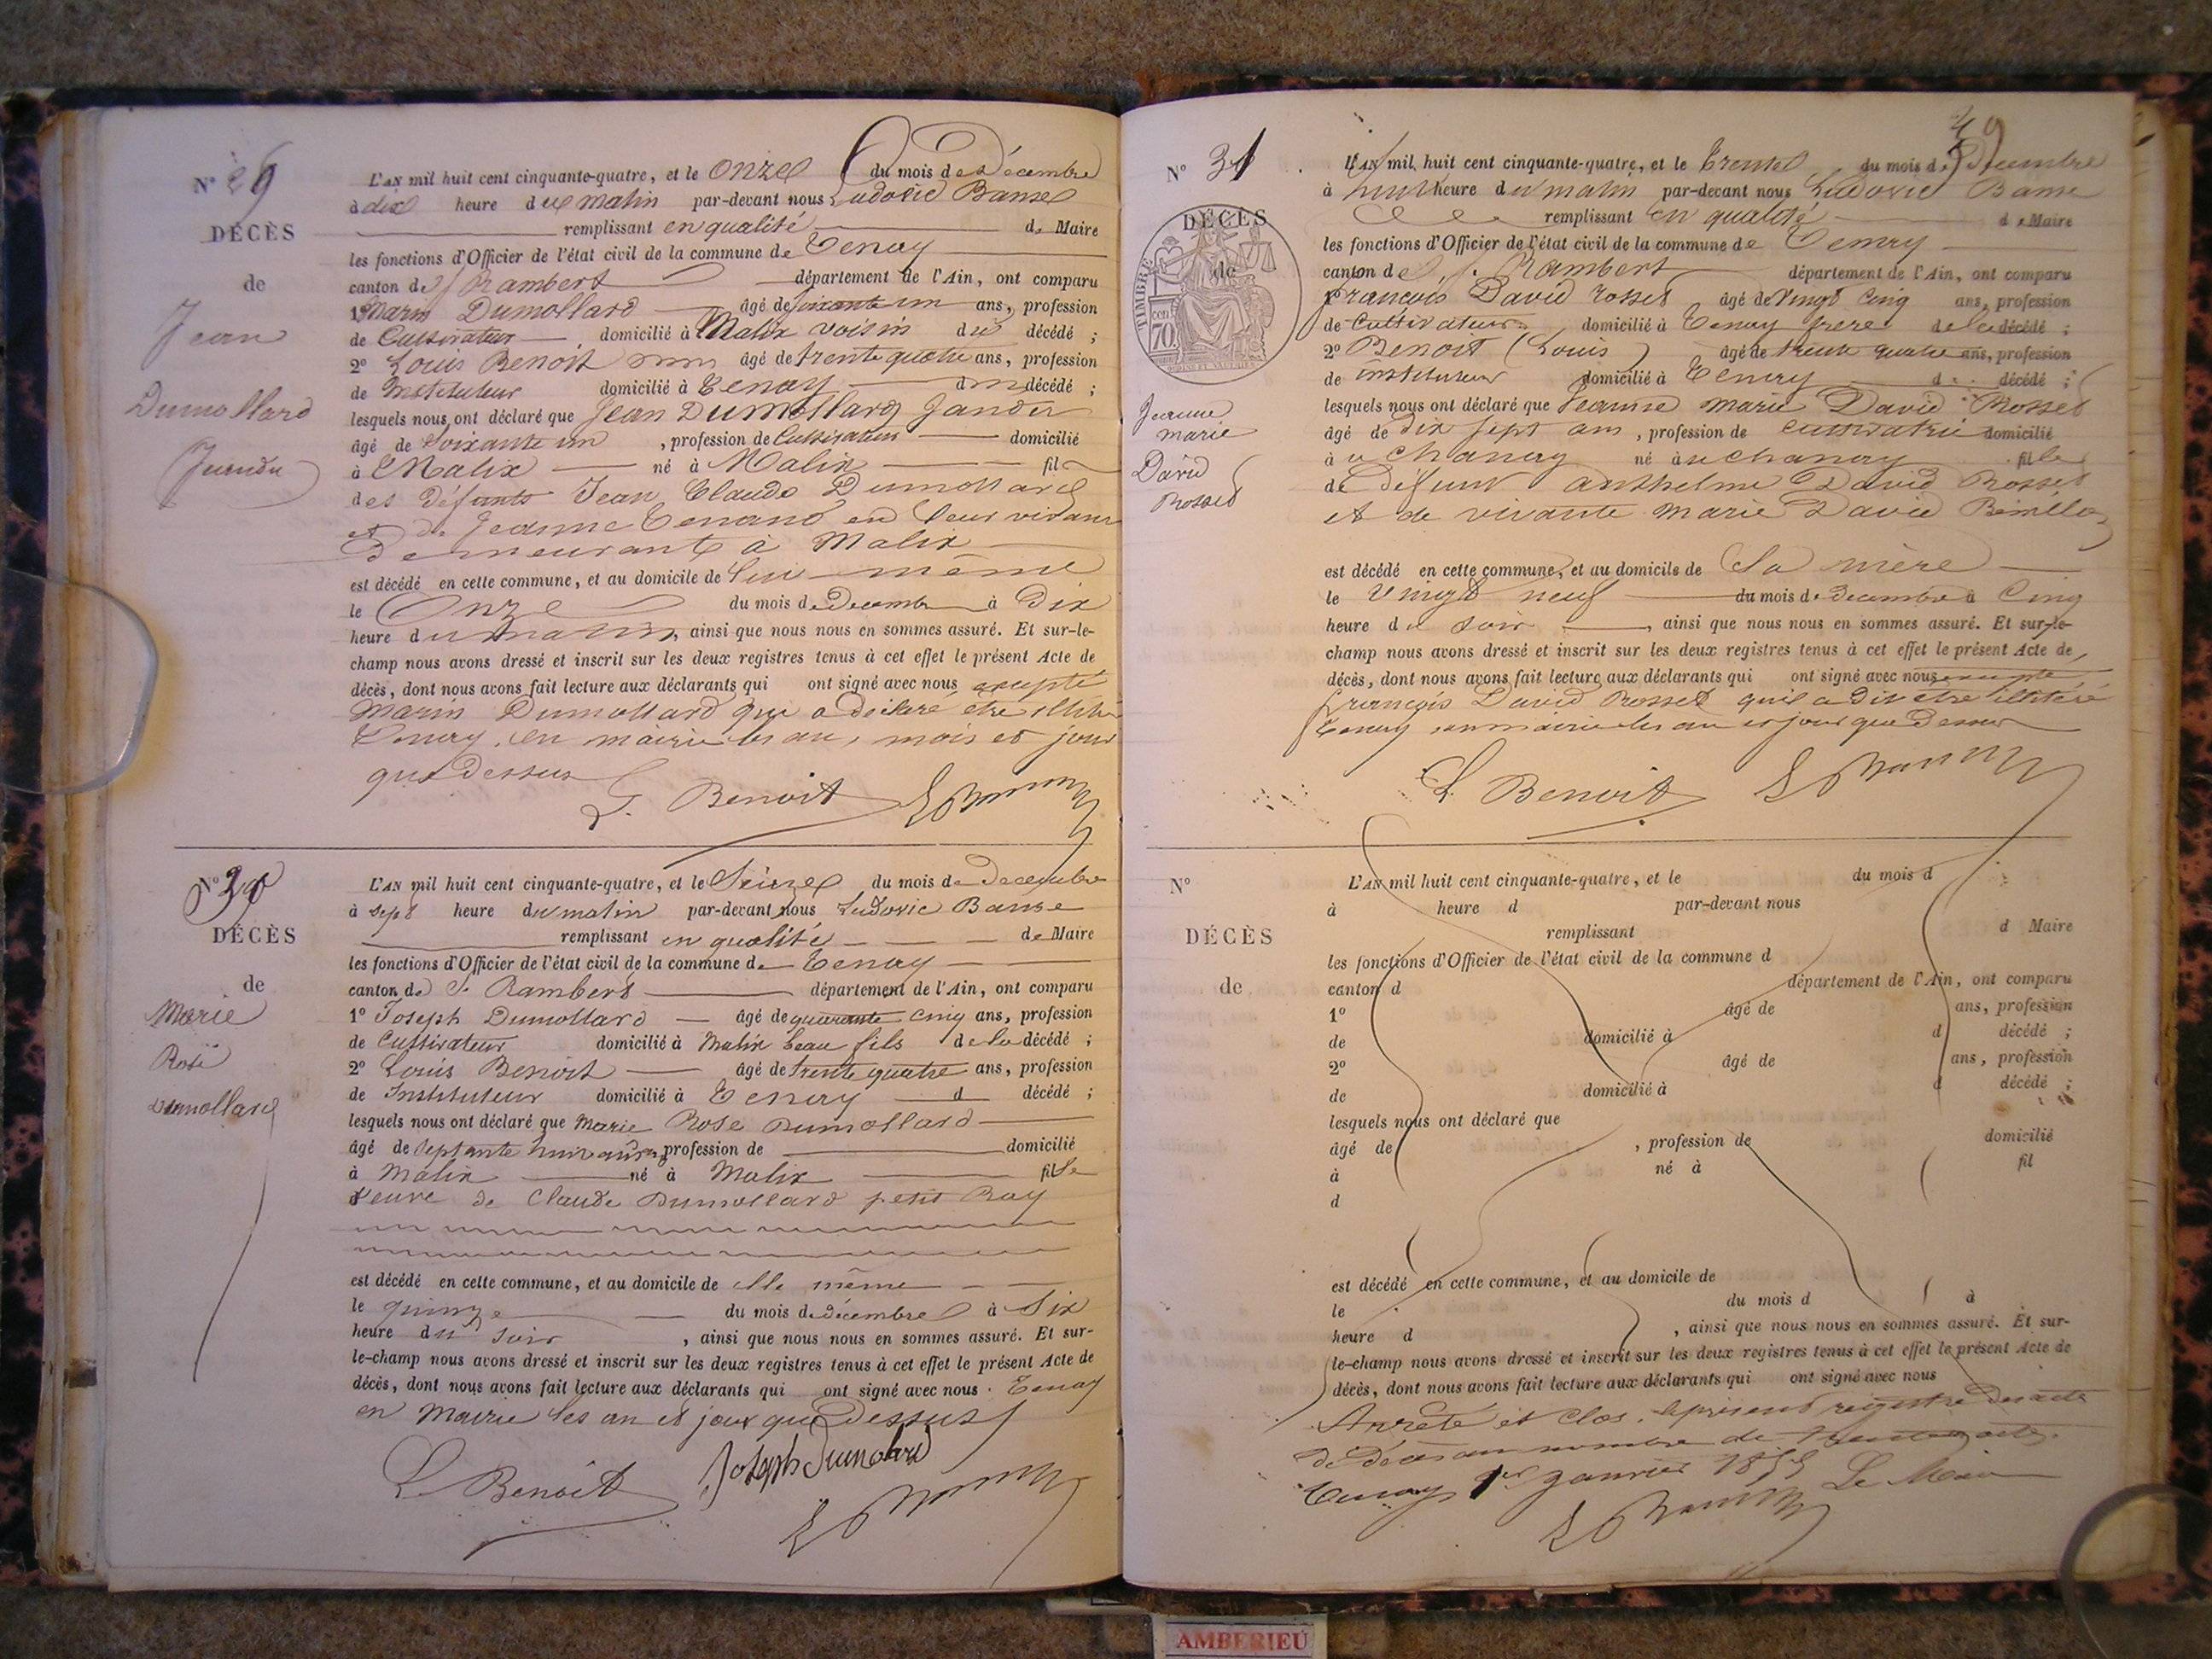 N° 29
DÉCÈS
de
Jean
Dumollard
Jandu
L'AN mil huit cent cinquante-quatre, et le onze du mois de Décembre
à dix heure du matin par-devant nous Ludovic Banse
remplissant en qualité de Maire
les fonctions d'Officier de l'état civil de la commune de Tenay
canton de St Rambert département de l'Ain, ont comparu
1° Marin Dumollard âgé de soixante un ans, profession
de Cultivateur domicilié à Malix voisin du décédé ;
2° Louis Benoit âgé de trente quatre ans, profession
de Instituteur domicilié à Tenay d décédé ;
lesquels nous ont déclaré que Jean Dumollard Jandu
âgé de Soixante un , profession de Cultivateur domicilié
à Malix né à Malix fils
des défunts Jean Claude Dumollard
et de Jeanne Tenand en leur vivant
demeurant à Malix
est décédé en cette commune, et au domicile de lui même
le Onze du mois de Decembre à Dix
heure du matin, ainsi que nous nous en sommes assuré. Et sur-le-
champ nous avons dressé et inscrit sur les deux registres tenus à cet effet le présent Acte de
décès, dont nous avons fait lecture aux déclarants qui ont signé avec nous excepté
Marin Dumollard qui a déclaré être illitéré
Tenay, en mairie les an, mois et jour
que dessus
L. Benoit L Banse
N° 30
DÉCÈS
de
Marie
Rose
Dumollard
L'AN mil huit cent cinquante-quatre, et le Seize du mois de Decembre
à sept heure du matin par-devant nous Ludovic Banse
remplissant en qualité de Maire
les fonctions d'Officier de l'état civil de la commune de Tenay
canton de St Rambert département de l'Ain, ont comparu
1° Joseph Dumollard âgé de quarante cinq ans, profession
de Cultivateur domicilié à Malix beau fils de la décédé ;
2° Louis Benoit âgé de trente quatre ans, profession
de Instituteur domicilié à Tenay d décédé ;
lesquels nous ont déclaré que Marie Rose Dumollard
âgé de septante huit ans, profession de domicilié
à Malix né à Malix fille
veuve de Claude Dumollard petit Ray
est décédé en cette commune, et au domicile de elle même
le quinze du mois de décembre à Six
heure du soir , ainsi que nous nous en sommes assuré. Et sur-
le-champ nous avons dressé et inscrit sur les deux registres tenus à cet effet le présent Acte de
décès, dont nous avons fait lecture aux déclarants qui ont signé avec nous. Tenay
en Mairie les an et jour que dessus
L Benoit Joseph Dumolard
L Banse
49
N° 31
DÉCÈS
de
TIMBRE
70 cent
Jeanne
marie
David
Rosset
L'AN mil huit cent cinquante-quatre, et le trente du mois de Decembre
à huit heure du matin par-devant nous Ludovic Banse
remplissant en qualité de Maire
les fonctions d'Officier de l'état civil de la commune de Tenay
canton de St. Rambert département de l'Ain, ont comparu
1° François David rosset âgé de vingt cinq ans, profession
de Cultivateur domicilié à Tenay frere de la décédé ;
2° Benoit (Louis) âgé de trente quatre ans, profession
de instituteur domicilié à Tenay d décédé ;
lesquels nous ont déclaré que Jeanne marie David Rosset
âgé de dix sept ans, profession de cultivatrice domicilié
à Chanay né à Chanay fille
de défunt anthelme David Rosset
et de vivante Marie David
est décédé en cette commune, et au domicile de Sa mère
le vingt neuf du mois de decembre à Cinq
heure du soir , ainsi que nous nous en sommes assuré. Et sur-le-
champ nous avons dressé et inscrit sur les deux registres tenus à cet effet le présent Acte de
décès, dont nous avons fait lecture aux déclarants qui ont signé avec nous excepté
françois David Rosset qui a dit être illitéré
Tenay en mairie les an et jour que dessus
L. Benoit L Banse
N°
DÉCÈS
de
L'AN mil huit cent cinquante-quatre, et le du mois d
à heure d par-devant nous
remplissant d Maire
les fonctions d'Officier de l'état civil de la commune d
canton d département de l'Ain, ont comparu
1° âgé de ans, profession
de domicilié à d décédé ;
2° âgé de ans, profession
de domicilié à d décédé ;
lesquels nous ont déclaré que
âgé de , profession de domicilié
à né à fil
d
est décédé en cette commune, et au domicile de
le du mois d à
heure d , ainsi que nous nous en sommes assuré. Et sur-
le-champ nous avons dressé et inscrit sur les deux registres tenus à cet effet le présent Acte de
décès, dont nous avons fait lecture aux déclarants qui ont signé avec nous
Arrêté et Clos, le présent registre des actes
de Décès au nombre de actes.
Tenay 1er janvier 1855 Le Maire
L Banse
AMBERIEU